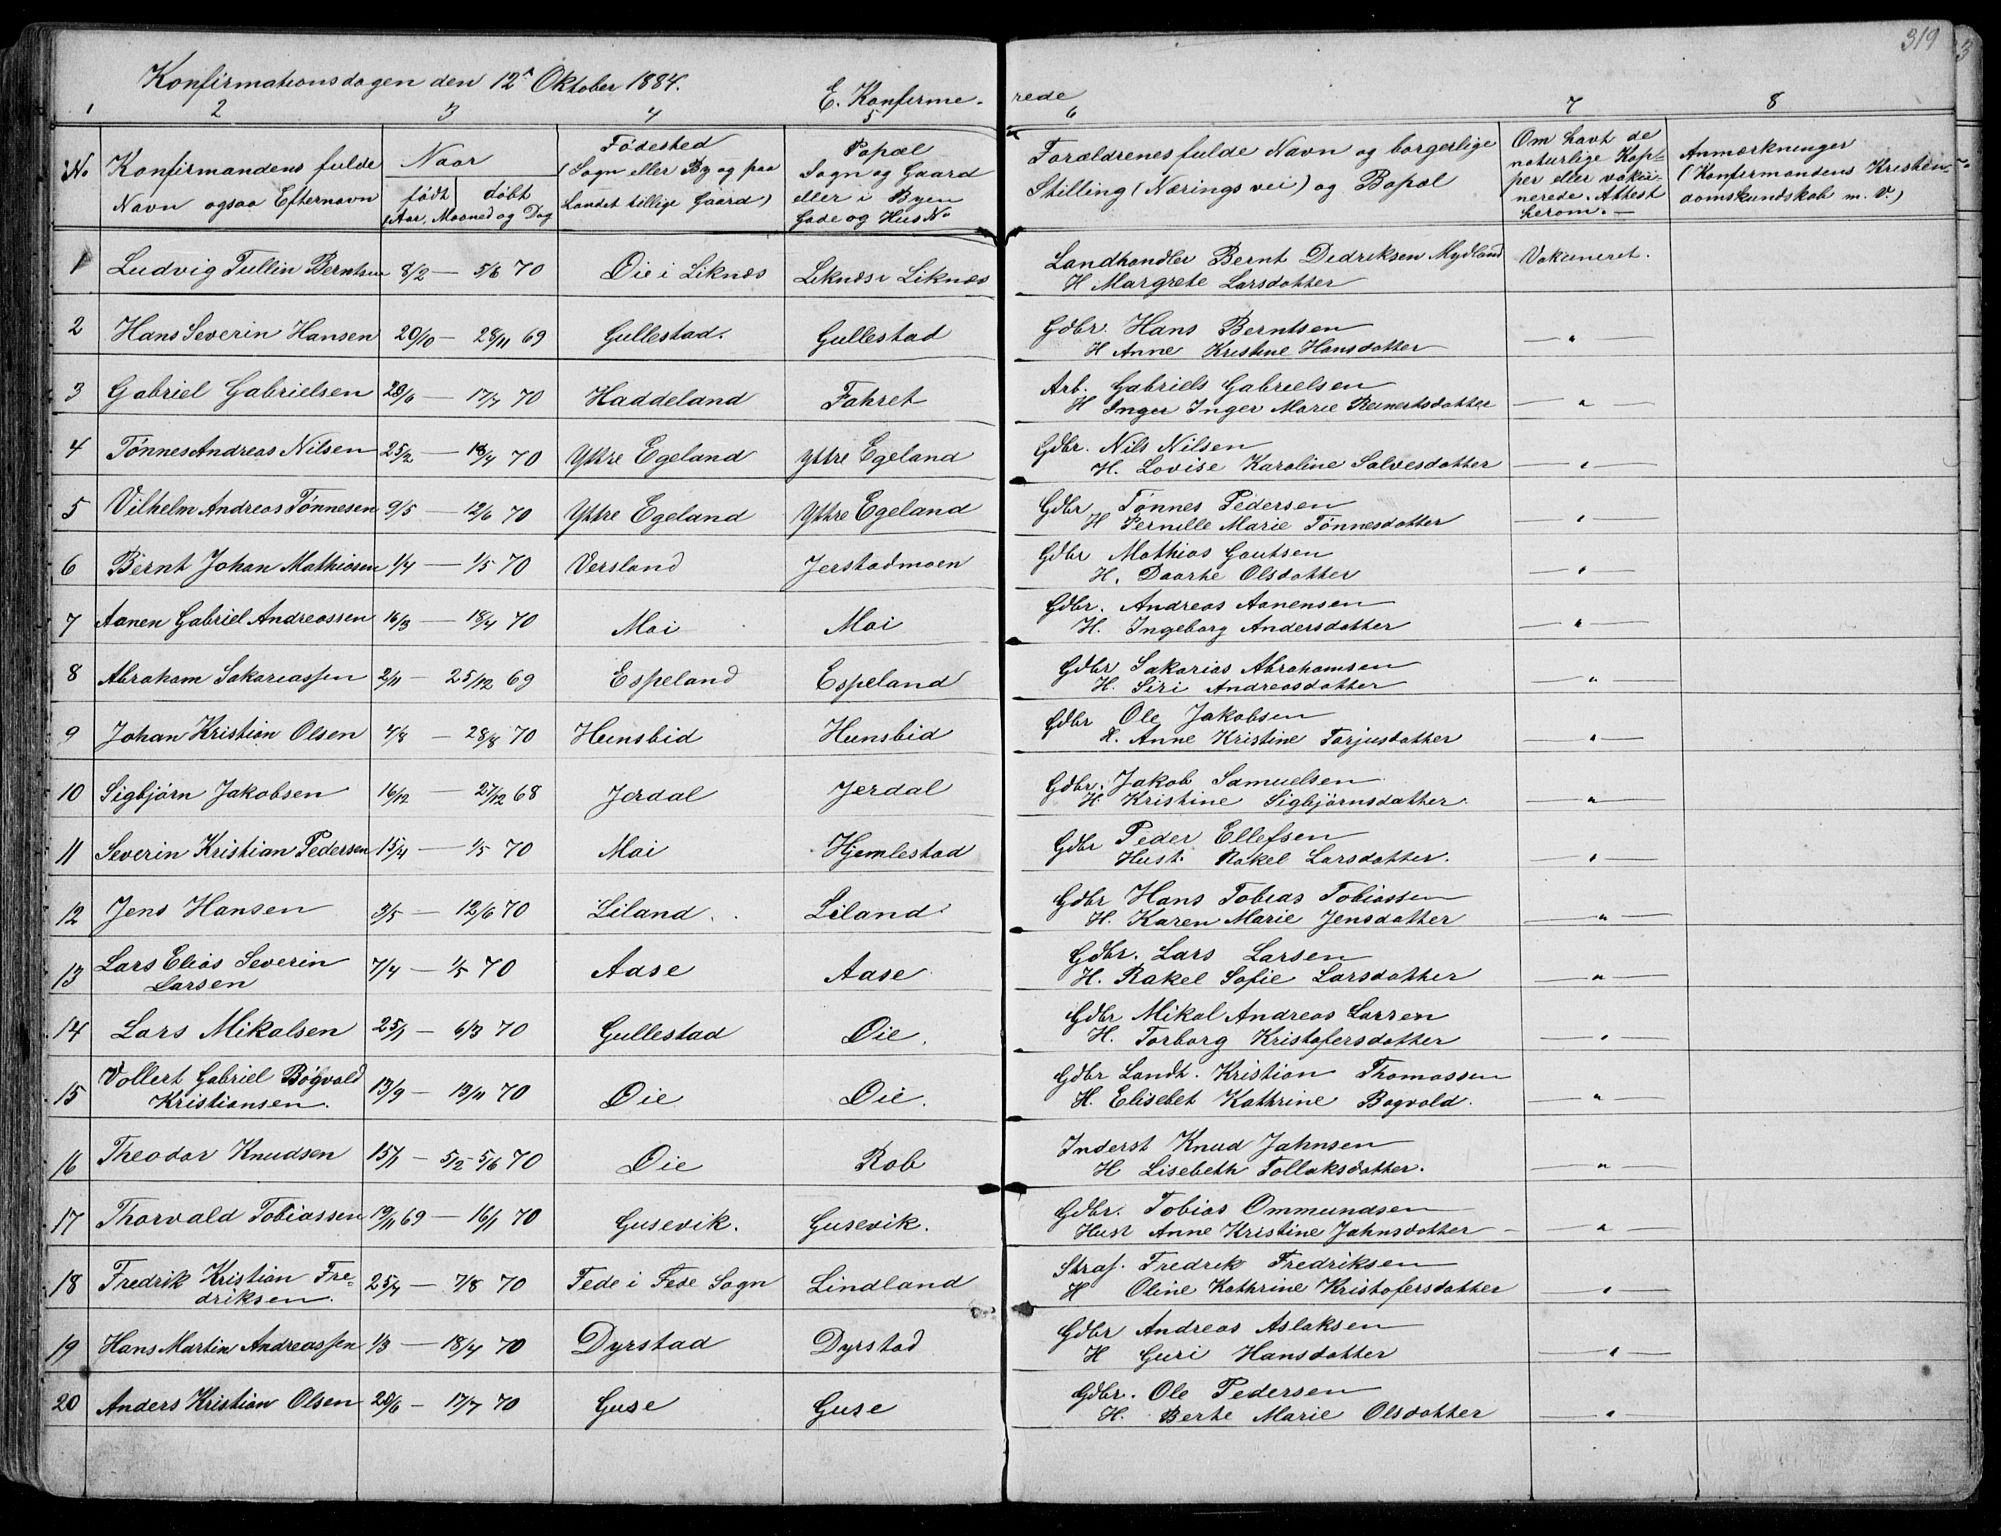 319
Konfirmationsdagen den 12te Oktober 1884.
E. Konfirme-
rede
1 2 3 4 5 6 7 8
No
Konfirmandens fulde
Navn ogsaa Efternavn
Naar
født døbt
(Aar, Maaned og Dag
Fødested
(Sogn eller By og paa
Landet tillige Gaard)
Bopæl
Sogn og Gaard
eller i Byen
Gade og Hus No
Forældrenes fulde Navn og borgerlige
Stilling (Næringsvei) og Bopæl
Om havt de
naturlige Kop-
per eller vakci-
nerede. Attest
herom.
Anmærkninger
(Konfirmandens Kristen-
domskundskab m. V.)
1 Ludvig Tullin Berntsen 8/2 — 5/6 70 Øie i Liknæs Liknæs i Liknæs Landhandler Bernt Didriksen Mydland Vakcineret.
H Margrete Larsdatter
2 Hans Severin Hansen 20/10 — 28/11 69 Gullestad. Gullestad Gdbr. Hans Berntsen
H Anne Kristine Hansdatter — " —
3 Gabriel Gabrielsen 29/6 — 17/7 70 Haddeland Fahret Arb. Gabriels Gabrielsen
H Inger Inger Marie Reinertsdatter — " —
4 Tønnes Andreas Nilsen 25/2 — 18/4 70 Yttre Egeland Yttre Egeland Gdbr. Nils Nilsen
H. Lovise Karoline Salvesdatter — " —
5 Vilhelm Andreas Tønnesen 9/5 — 12/6 70 Yttre Egeland Yttre Egeland Gdbr Tønnes Pedersen
H Pernille Marie Tønnesdatter — " —
6 Bernt Johan Mathiasen 1/4 — 1/5 70 Versland Jerstadmoen Gdbr Mathias Gautsen
H. Daarte Olsdatter — " —
7 Aanen Gabriel Andreassen 16/3 — 18/4 70 Moi Moi Gdbr. Andreas Aanensen
H. Ingeborg Andersdatter — " —
8 Abraham Sakariassen 2/11 — 25/12 69 Espeland Espeland Gdbr Sakarias Abrahamsen
H. Siri Andreasdatter — " —
9 Johan Kristian Olsen 4/8 — 28/8 70 Hunsbid Hunsbid Gdbr Ole Jakobsen
H. Anne Kristine Torjusdatter — " —
10 Sigbjørn Jakobsen 16/12 — 27/12 68 Jerdal Jerdal Gdbr. Jakob Samuelsen
H. Kristine Sigbjørnsdatter. — " —
11 Severin Kristian Pedersen 15/4 — 1/5 70 Moi Hjemlestad Gdbr Peder Ellefsen
Hust. Rakel Larsdatter. — " —
12 Jens Hansen 3/5 — 12/6 70 Liland. Liland. Gdbr Hans Tobias Tobiassen
H. Karen Marie Jensdatter — " —
13 Lars Elias Severin 7/4 — 1/5 70 Aase Aase. Gdbr. Lars Larsen
Larsen H. Rakel Sofie Larsdatter — " —
14 Lars Mikalsen 25/1 — 6/3 70 Gullestad Øie. Gdbr Mikal Andreas Larsen
H. Torborg Kristofersdatter — " —
15 Vollert Gabriel Bøgvald 13/9 — 13/11 70 Øie Øie. Gdbr Landh. Kristian Thomassen
Kristiansen. H. Elisebet Kathrine Bogvald. — " —
16 Theodor Knudsen 15/1 — 5/2 5/6 70 Øie Rob Inderst Knud Jahnsen
H Lisebeth Tollaksdatter. — " —
17 Thorvald Tobiassen 19/11 69 — 16/1 70 Gusevik. Gusevik. Gdbr. Tobias Ommundsen
Hust Anne Kristine Jahnsdatter — " —
18 Fredrik Kristian Fre- 25/7 — 7/8 70 Fede i Fede Sogn Lindland Straf. Fredrik Fredriksen
driksen. H Oline Kathrine Kristofersdatter — " —
19 Hans Martin Andreassen 1/3 — 18/4 70 Dyrstad Dyrstad Gdbr Andreas Aslaksen
H Guri Hansdatter — " —
20 Anders Kristian Olsen 20/6 — 17/7 70 Guse Guse Gdbr. Ole Pedersen
H. Berte Marie Olsdatter — " —